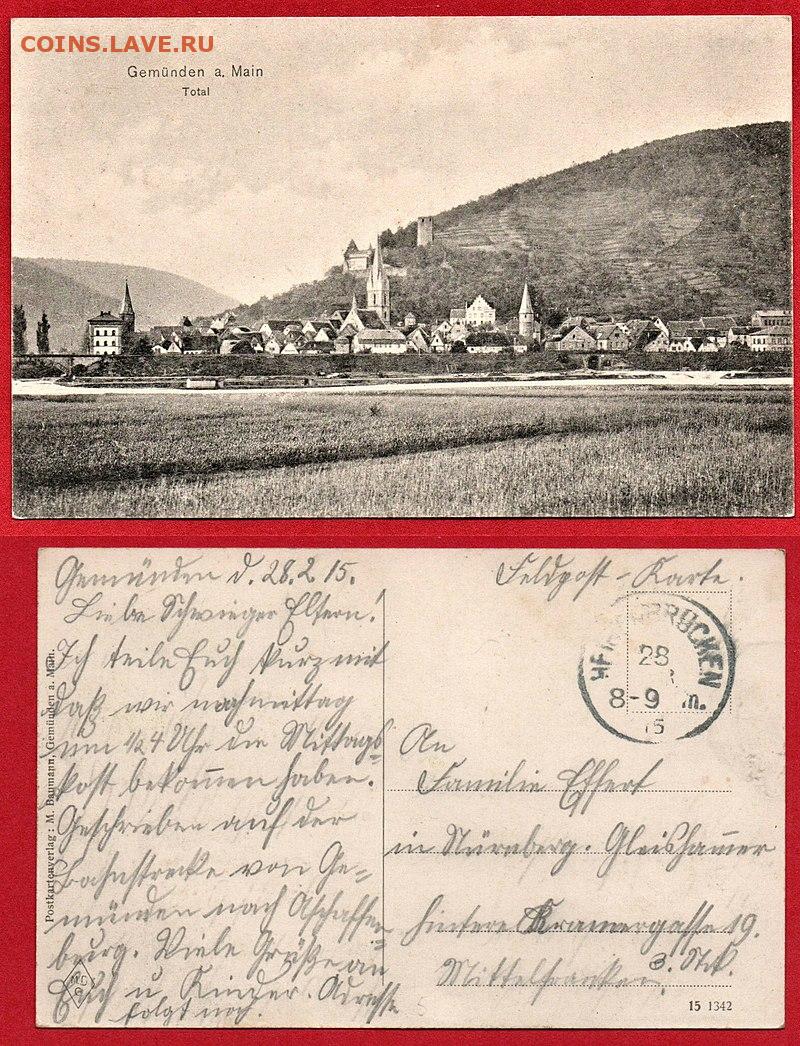 COINS.LAVE.RU
Gemünden a. Main
Total
Gemünden d. 28.2.15.
Liebe Schwieger Eltern!
Ich teile Euch kurz mit
daß wir nachmittag
um ½4 Uhr die Mittags-
kost bekommen haben.
Geschrieben auf der
Bahnstrecke von Ge-
münden nach Aschaffen-
burg. Viele Grüße an
Euch u. Kinder. Adresse
folgt noch.
Postkartenverlag: M. Baumann, Gemünden a. Main.
Feldpost-Karte.
BRÜCKEN
28
8-9 m.
15
An
Familie Effert
in Nürnberg. Gleishammer
hintere Kramergasse 19.
3. Stk.
Mittelfranken.
15 1342